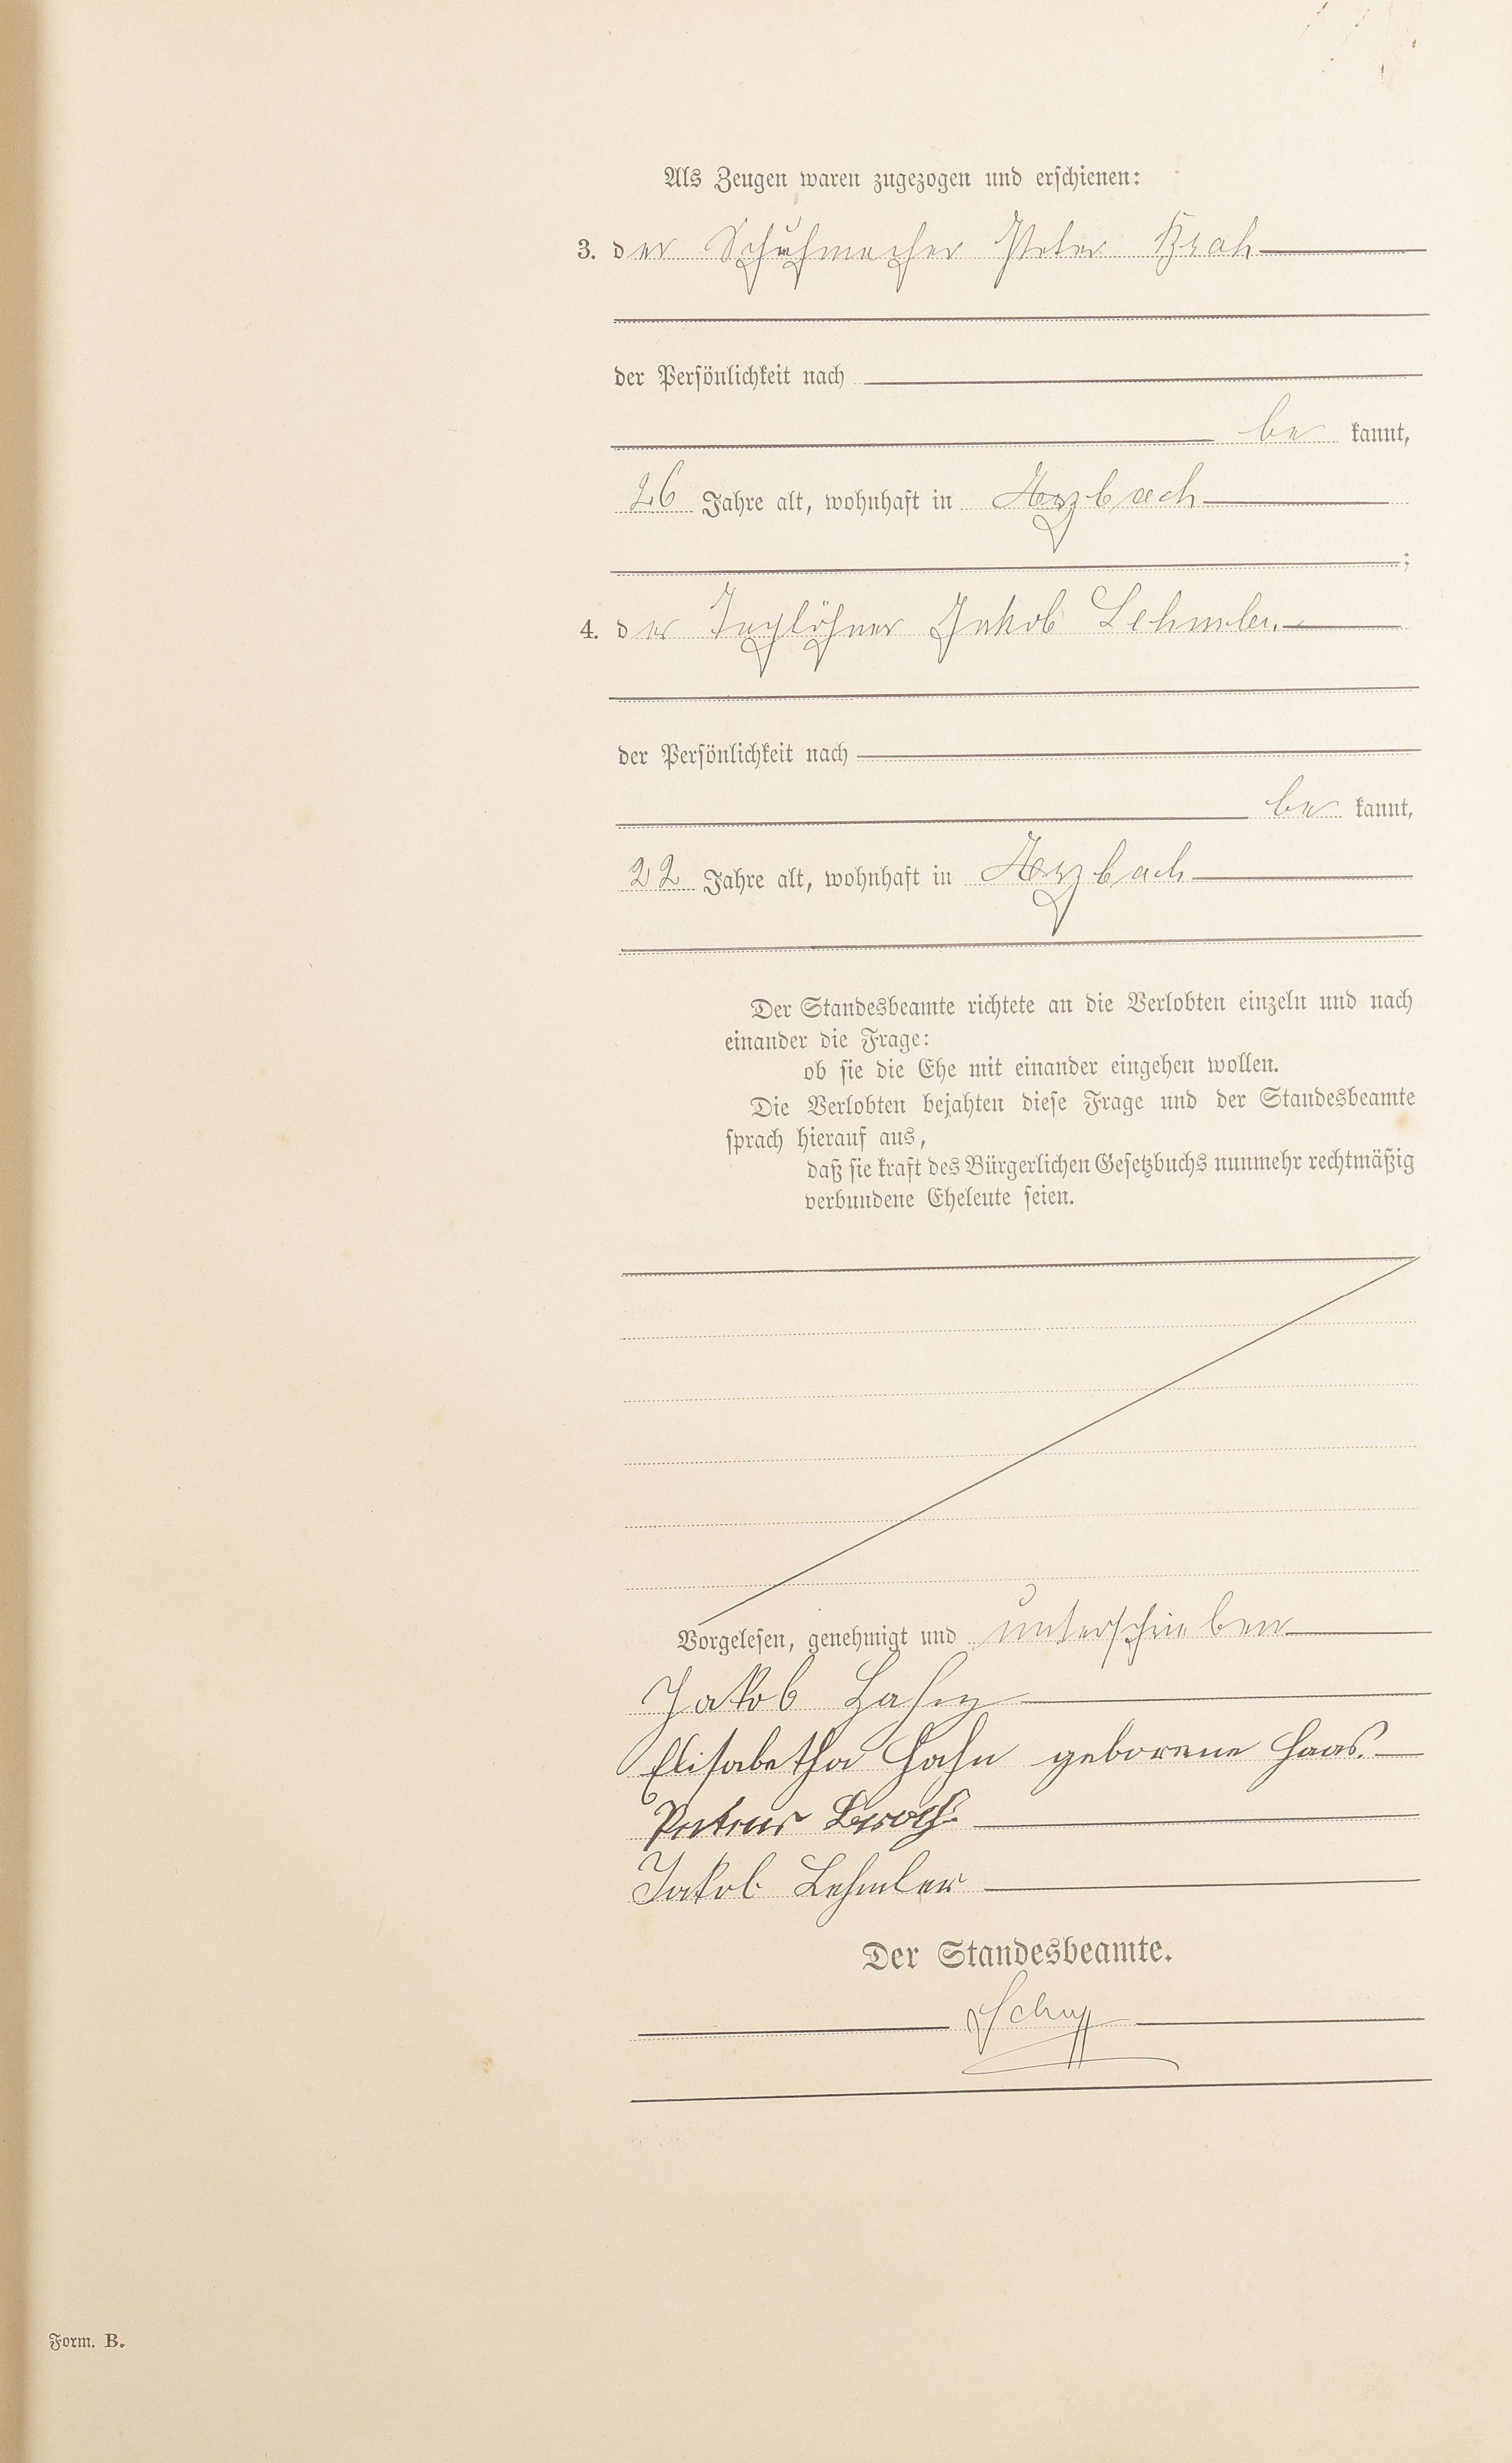 Als Zeugen waren zugezogen und erschienen:
3. der Schuhmacher Peter Krah
der Persönlichkeit nach
be kannt,
26 Jahre alt, wohnhaft in Arzbach
;
4. der Taglöhner Jakob Lehmler
der Persönlichkeit nach
be kannt,
22 Jahre alt, wohnhaft in Arzbach
Der Standesbeamte richtete an die Verlobten einzeln und nach
einander die Frage:
ob sie die Ehe mit einander eingehen wollen.
Die Verlobten bejahten diese Frage und der Standesbeamte
sprach hierauf aus,
daß sie kraft des Bürgerlichen Gesetzbuchs nunmehr rechtmäßig
verbundene Eheleute seien.
Vorgelesen, genehmigt und unterschrieben
Jakob Hahn
Elisabetha Hahn geborene Haas.
Jakob Lehmler
Der Standesbeamte.
Form. B.